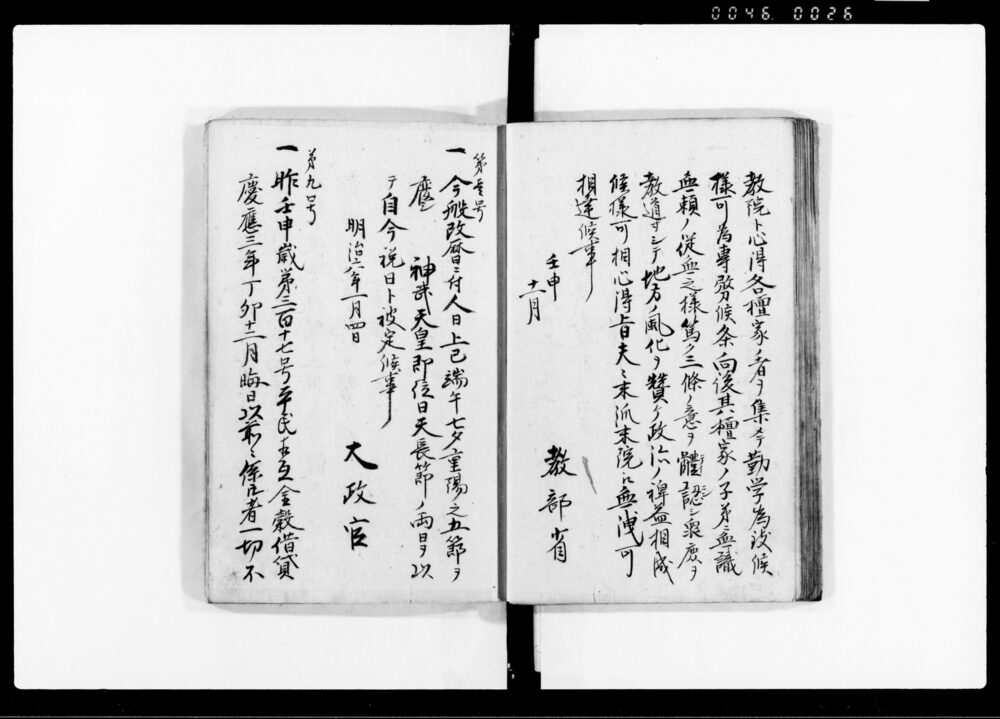 0046 0026
教院ト心得各檀家ノ者ヲ集令勤学為致候
様可為専務候条向後其檀家ノ子弟無識
無頼ノ徒無之様篤ク三條ノ意ヲ體認シ衆庶ヲ
教導シテ地方ノ風化ヲ賛ケ政治ノ裨益相成
候様可相心得旨夫々末派末院江無洩可
相達候事
壬申
十一月
教部省
第壱号
一今般改暦ニ付人日上巳端午七夕重陽之五節ヲ
廃
神武天皇即位日天長節ノ両日ヲ以
テ自今祝日ト被定候事
明治六年一月四日
大政官
第九号
一昨壬申歳第三百十七号平民相互金穀借貸
慶應三年丁卯十二月晦日以前ニ係候者一切不